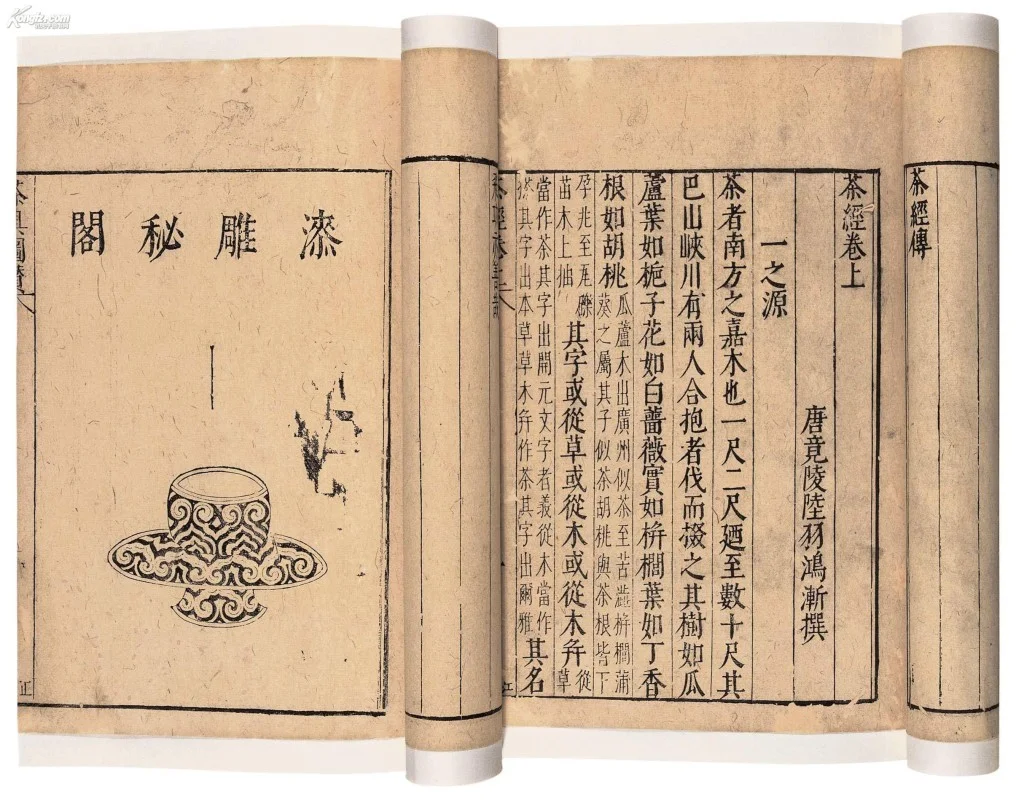 茶經傳
茶經卷上
唐竟陵陸羽鴻漸撰
一之源
茶者南方之嘉木也一尺二尺廼至數十尺其
巴山峽川有兩人合抱者伐而掇之其樹如瓜
蘆葉如梔子花如白薔薇實如栟櫚葉如丁香
根如胡桃
瓜蘆木出廣州似茶至苦澁栟櫚蒲
葵之屬其子似茶胡桃與茶根皆下
孕兆至瓦礫
苗木上抽
其字或從草或從木或從木弁
從
草
當作茶其字出開元文字者義從木當作
㭨其字出本草草木弁作荼其字出爾雅
其名
漆雕秘閣
茶具圖贊
Kongfz.com